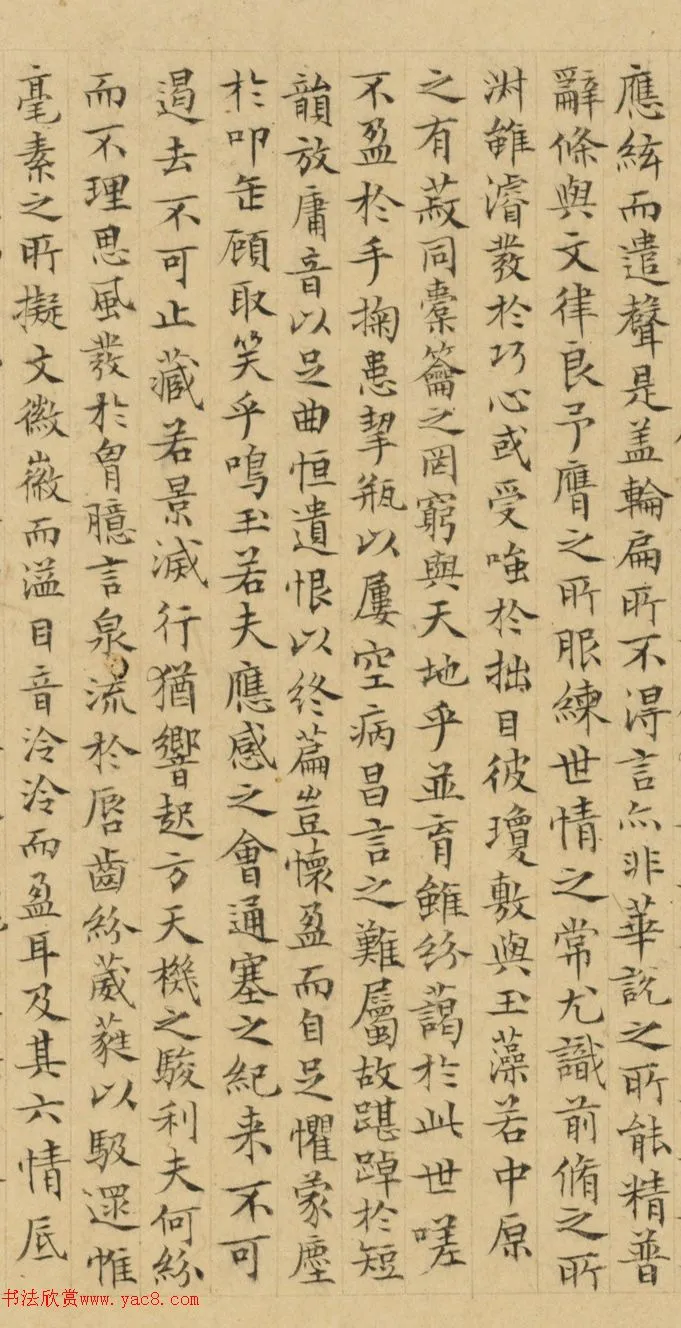 應絃而遣聲是盖輪扁所不得言亦非華說之所能精普
辭條與文律良予膺之所服練世情之常尤識前脩之所
淑雖濬發於巧心或受嗤於拙目彼瓊敷與玉藻若中原
之有菽同橐籥之罔窮與天地乎並育雖紛藹於此世嗟
不盈於手掬患挈瓶以屢空病昌言之難屬故踸踔於短
韻放庸音以足曲恒遺恨以終篇豈懷盈而自足懼蒙塵
於叩缶顧取笑乎鳴玉若夫應感之會通塞之紀来不可
遏去不可止藏若景滅行猶響起方天機之駿利夫何紛
而不理思風發於胷臆言泉流於唇齒紛葳蕤以馺遝惟
毫素之所擬文徽徽而溢目音泠泠而盈耳及其六情底
书法欣赏www.yac8.com